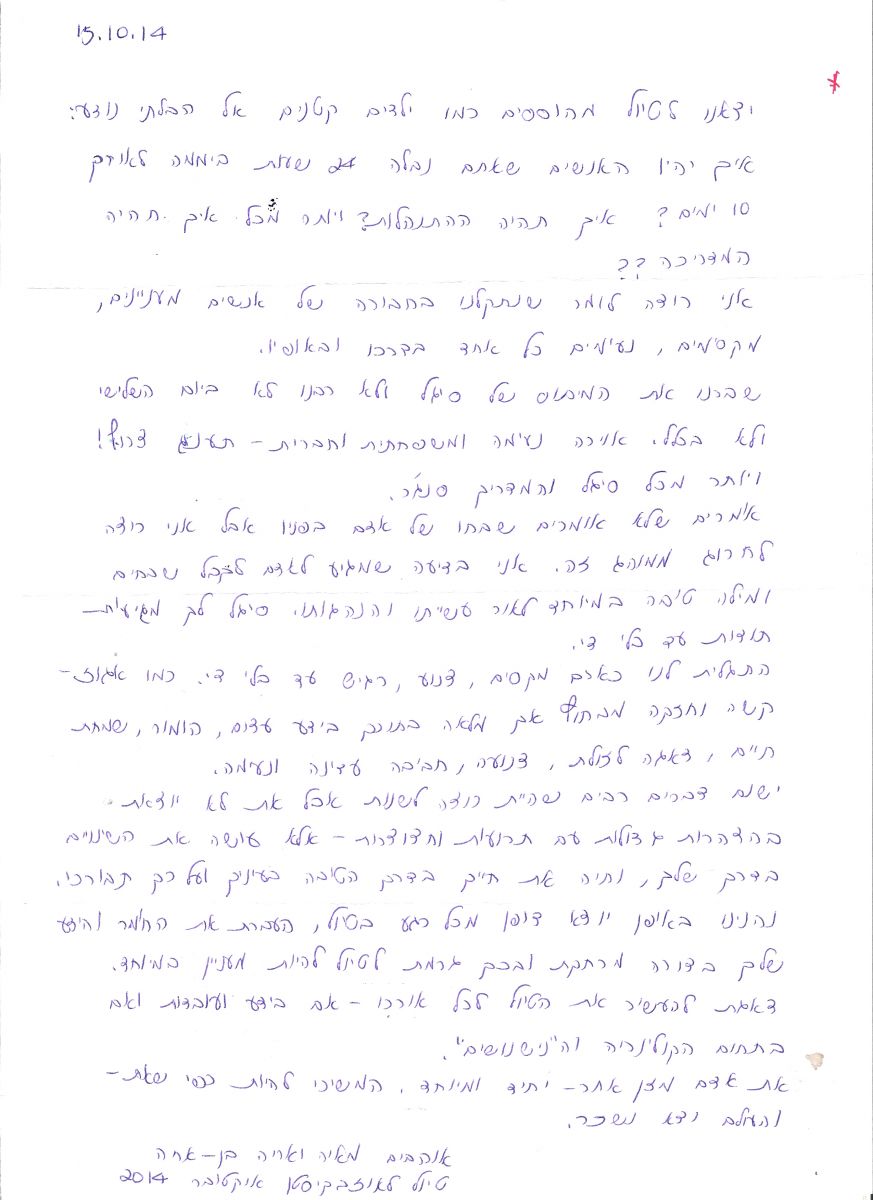 15.10.14
יצאנו לטיול מהוססים כמו ילדים קטנים אל הבלתי נודע:
איך יהיו האנשים שאתם נבלה 24 שעות ביממה לאורך
10 ימים? איך תהיה ההתנהלות? ויותר מכל איך תהיה
המדריכה ??
אני רוצה לומר שנתקלנו בחבורה של אנשים מעניינים,
מקסימים, נעימים כל אחד בדרכו ובאופיו.
שברנו את המיתוס של סיגל ולא רבנו לא ביום השלישי
ולא בכלל. אוירה נעימה ומשפחתית וחברית – תענוג צרוף!
ויותר מכל סיגל והמדריך סנג'ר.
אומרים שלא אומרים שבחו של אדם בפניו אבל אני רוצה
לחרוג ממנהג זה. אני בדיעה שמגיע לאדם לקבל שבחים
ומילה טובה במיוחד לאור עשייתו והנהגותו. סיגל לך מגיעות –
תודות עד בלי די.
התגלית לנו כאדם מקסים, צנוע, רגיש עד בלי די. כמו אגוז –
קשה וחזקה מבחוץ אך מלאה בתוכך בידע עצום, הומור, שמחת
חיים, דאגה לזולת, צנועה, חביבה עדינה ונעימה.
ישנם דברים רבים שהיית רוצה לשנות אבל את לא יוצאת
בהצהרות גדולות עם תרועות וחצוצרות – אלא עושה את השינויים
בדרך שלך, וחיה את חייך בדרך הטובה בעיניך ועל כך תבורכי.
נהנינו באופן יוצא דופן מכל רגע בטיול, העברת את החומר והידע
שלך בצורה מרתקת ובכך גרמת לטיול להיות מעניין במיוחד.
דאגת להעשיר את הטיול לכל אורכו – אם בידע ועובדות ואם
בתחום הקולינריה וה"נישנושים".
את אדם מזן אחר – יחיד ומיוחד. המשיכי להיות כפי שאת –
והעולם יצא נשכר.
אוהבים מאיה ואריה בן-אחה
טיול לאוזבקיסטן אוקטובר 2014